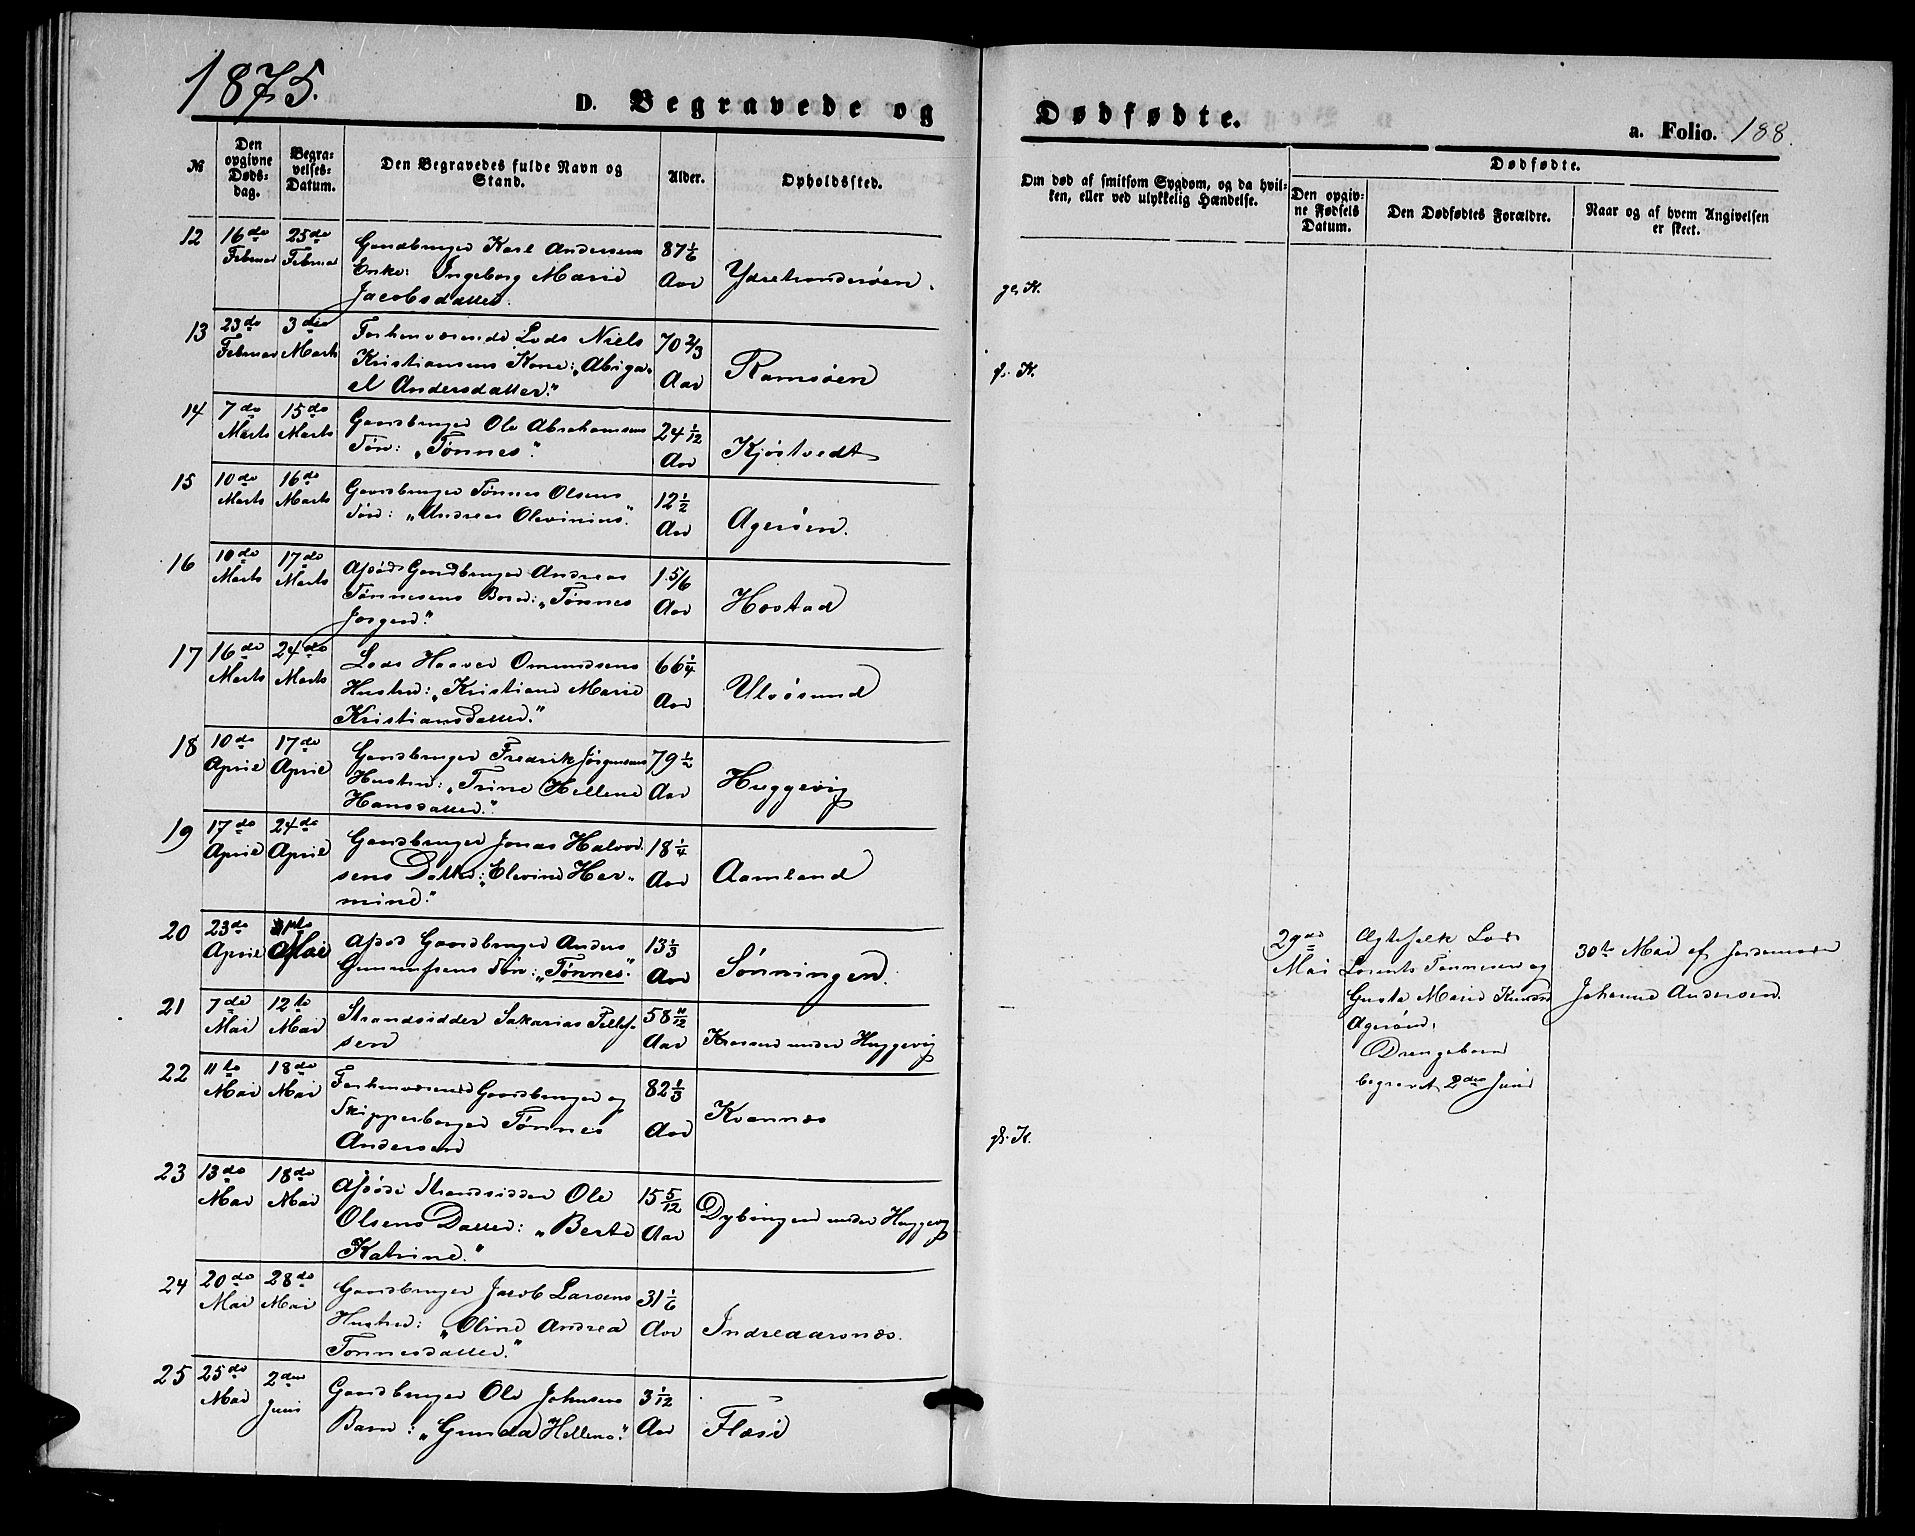 1875.
D. Begravede og Dødfødte.
a. Folio. 188.
№
Den opgivne Døds-dag.
Begra-velses-Datum.
Den Begravedes fulde Navn og Stand.
Alder.
Opholdssted.
Om død af smitsom Sygdom, og da hvil-ken, eller ved ulykkelig Hændelse.
Dødfødte.
Den opgiv-ne Fødsels Datum.
Den Dødfødtes Forældre.
Naar og af hvem Angivelsen er skeet.
12 16de 25de Gaardbruger Karl Andersens 87 1/6
Februar Februar Enke: Ingeborg Marie Aar Ydretronderøen.
Jacobsdatter.
gl. K.
13 23de 3die Forhenværende Lods Niels 70 2/3
Februar Marts Kristiansens Kone: „Abiga- Aar Ramsøen
el Andersdatter."
gl. K.
14 7de 15de Gaardbruger Ole Abrahamsens 24 1/12
Marts Marts Søn: „Tønnes". Aar Kjøstvedt
15 10de 16de Gaardbruger Tønnes Olsens 12 1/2
Marts Marts Søn: „Andreas Olevinius". Aar Agerøen.
16 10de 17de Afdøde Gaardbruger Andreas 1 5/6
Marts Marts Tønnesens Barn: „Tønnes Aar Hæstad
Jørgen".
17 16de 24de Lods Haaver Omundsens 66 1/4
Marts Marts Hustru: „Kristiane Marie Aar Ulvøsund
Kristiansdatter."
18 10de 17de Gaardbruger Fredrik Jørgensens 79 1/2
April April Hustru: „Trine Hellene Aar Huggevig
Hansdatter".
19 17de 24de Gaardbruger Jonas Halvor- 18 1/4
April April sens Datter: „Elevine Her- Aar Aamland
mine".
20 23de 1ste Afdød Gaardbruger Anders 13 1/3
April Mai Gunnufsens Søn: „Tønnes". Aar Sønningen.
29de Mai
Ægtefolk Lods
Lorents Tønnesen og
Gusta Marie Knuds
Agerøen,
Drengebarn
begravet 2den Juni
30te Mai af Jordemoder
Johanne Andersen.
21 7de 12te Strandsidder Sakarias Tellef- 58 11/12
Mai Mai sen Aar Krossen under Huggevig
22 11te 18de Forhenværende Gaardbruger og 82 1/3
Mai Mai Skipperborger Tønnes Aar Kvannes
Andersen
gl. K.
23 13de 18de Afdøde Strandsidder Ole 15 5/12
Mai Mai Olsens Datter: „Berte Aar Dybingen under Huggevig
Katrine."
24 20de 28de Gaardbruger Jacob Larsens 31 1/6
Mai Mai Hustru: „Oline Andrea Aar Indreaarsnæs.
Tønnesdatter."
25 25de 2den Gaardbruger Ole Johnsens 3 1/12
Mai Juni Barn: „Gunda Hellene". Aar Flæsø